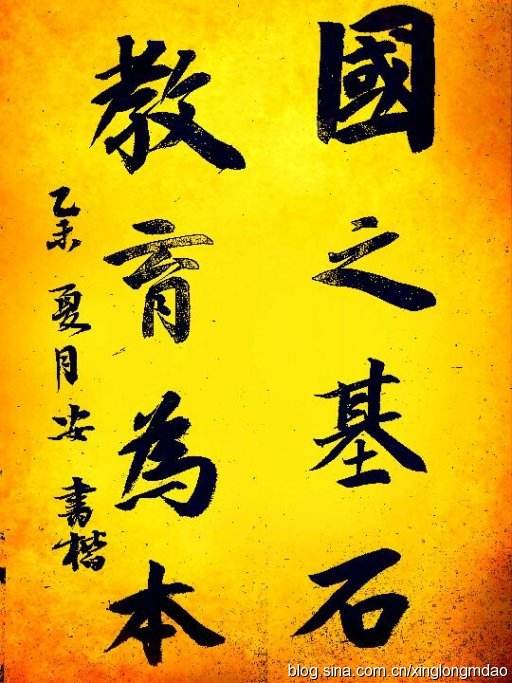 國之基石
教育為本
乙未夏月安書楷
blog.sina.com.cn/xinglongmdao